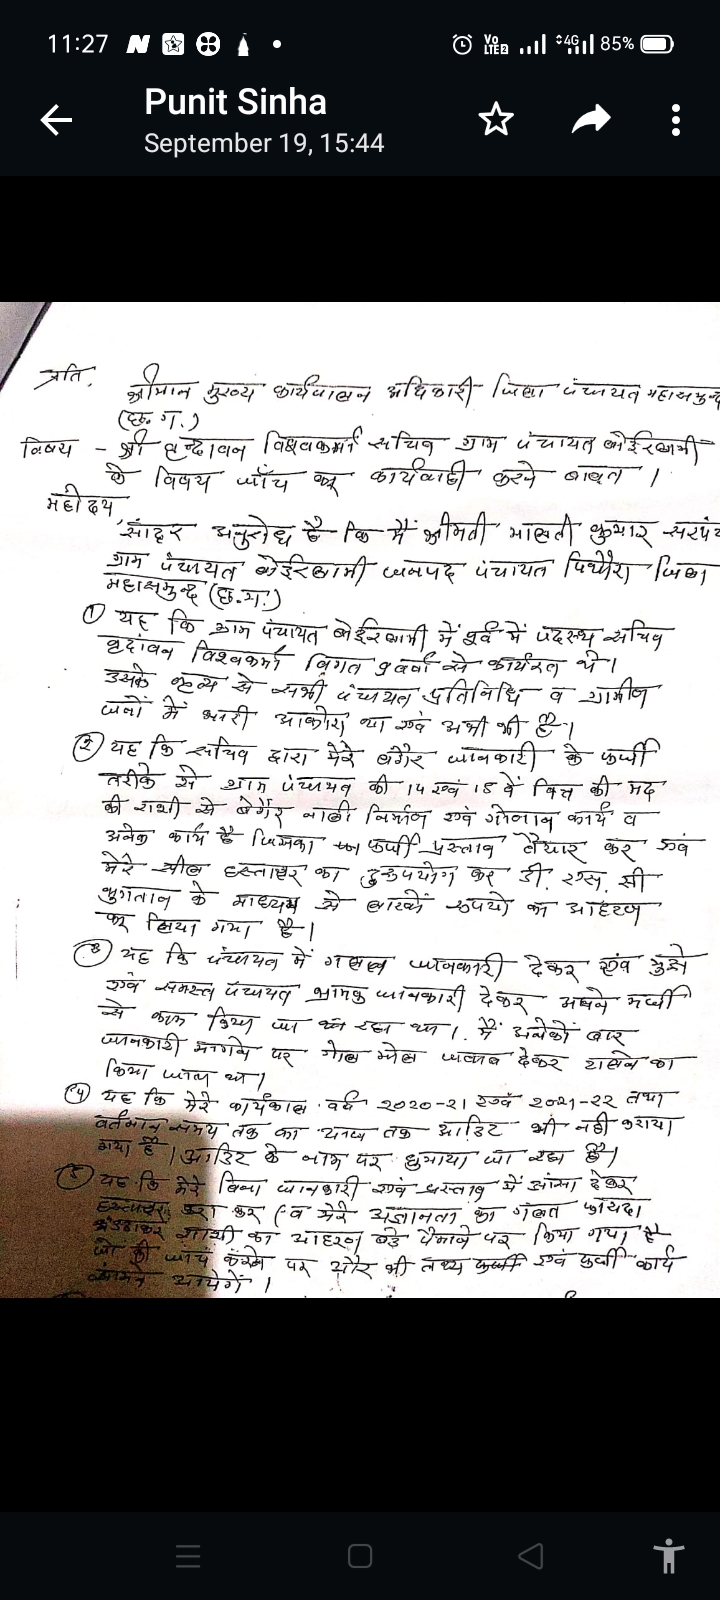 11:27
Vo LTE2 4G 85%
Punit Sinha
September 19, 15:44
प्रति,
श्रीमान मुख्य कार्यपालन अधिकारी जिला पंचायत महासमुन्द
(छ.ग.)
विषय - श्री वृन्दावन विश्वकर्मा सचिव ग्राम पंचायत
के विषय जाँच कर कार्यवाही करने बाबत ।
महोदय,
सादर अनुरोध है कि मैं श्रीमती मालती कुमार सरपंच
ग्राम पंचायत जनपद पंचायत पिथौरा जिला
महासमुन्द (छ.ग.)
① यह कि ग्राम पंचायत में पूर्व में पदस्थ सचिव
बृदांवन विश्वकर्मा विगत वर्षो से कार्यरत थे।
उसके कृत्य से सभी पंचायत प्रतिनिधि व ग्रामीण
जनों में भारी आक्रोश था एवं अभी भी है।
② यह कि सचिव द्वारा मेरे बगैर जानकारी के फर्जी
तरीके से ग्राम पंचायत की 14 एवं 15 वें वित्त की मद
की राशी से बगैर नाली निर्माण एवं कार्य व
अनेक कार्य है जिसका फर्जी प्रस्ताव तैयार कर एवं
मेरे सील हस्ताक्षर का दुरुपयोग कर डी. एस. सी
भुगतान के माध्यम से लाखों रुपयो का आहरण
कर लिया गया है।
③ यह कि पंचायत में गलत जानकारी देकर एवं मुझे
एवं समस्त पंचायत भ्रामक जानकारी देकर अपने मर्जी
से काम किया जा रहा था। मैं अनेकों बार
जानकारी मांगने पर गोल मोल जवाब देकर टालने का
किया जाता था।
④ यह कि मेरे कार्यकाल वर्ष २०२०-२१ एवं २०२१-२२ तथा
वर्तमान समय तक का आज तक आडिट भी नही कराया
गया है। आडिट के नाम पर घुमाया जा रहा है।
⑤ यह कि मेरे बिना जानकारी एवं प्रस्ताव में झांसा देकर
हस्ताक्षर करा कर व मेरे अज्ञानता का गलत फायदा
राशी का आहरण बडे पैमाने पर किया गया है
जो की जांच करने पर और भी तथ्य फर्जी एवं फर्जी कार्य
सामने आयेगें ।